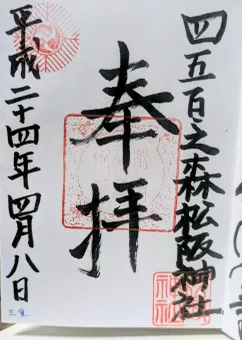 四五百之森松阪神社
奉拝
平成二十四年四月八日